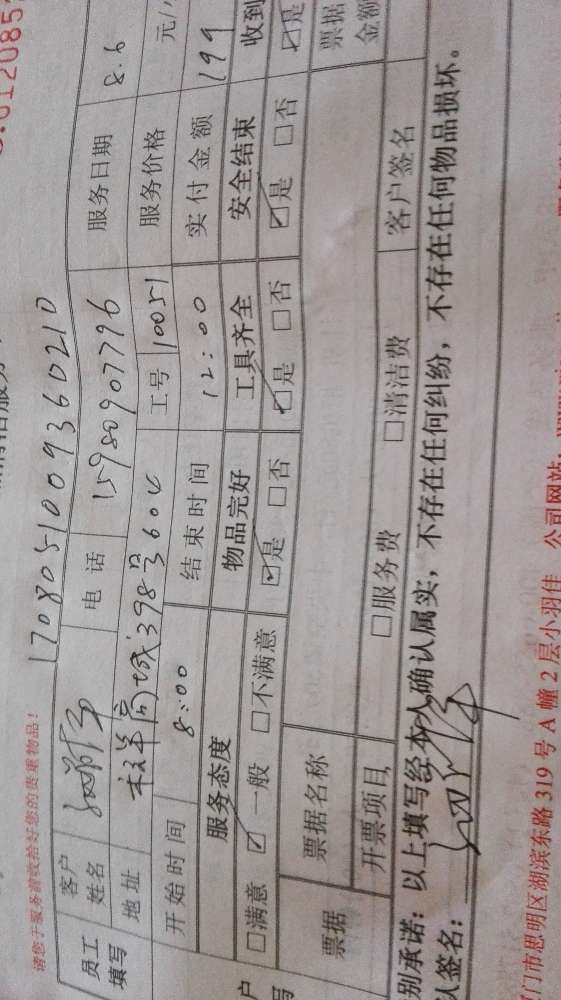 请您于服务前收拾好您的贵重物品！
1708051009360210
员工填写 客户姓名 电话 15980907796 服务日期 8.6
地址 398号604 工号 10051 服务价格 元/
开始时间 8:00 结束时间 12:00 实付金额 199
服务态度 物品完好 工具齐全 安全结束 收到
□满意 ☑一般 □不满意 ☑是 □否 ☑是 □否 ☑是 □否 ☑是
票据 票据名称 票据金额
开票项目 □服务费 □清洁费 客户签名
别承诺：以上填写经本人确认属实，不存在任何纠纷，不存在任何物品损坏。
认签名：
门市思明区湖滨东路 319 号 A 幢 2 层小羽佳 公司网站：